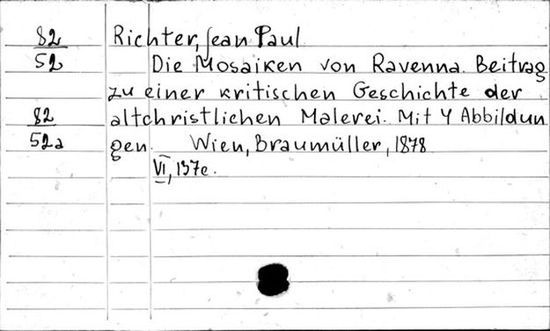 82 Richter, Jean Paul
52 Die Mosaiken von Ravenna. Beitrag
zu einer kritischen Geschichte der
82 altchristlichen Malerei. Mit 4 Abbildun
52a gen. Wien, Braumüller, 1878
VI, 137e.